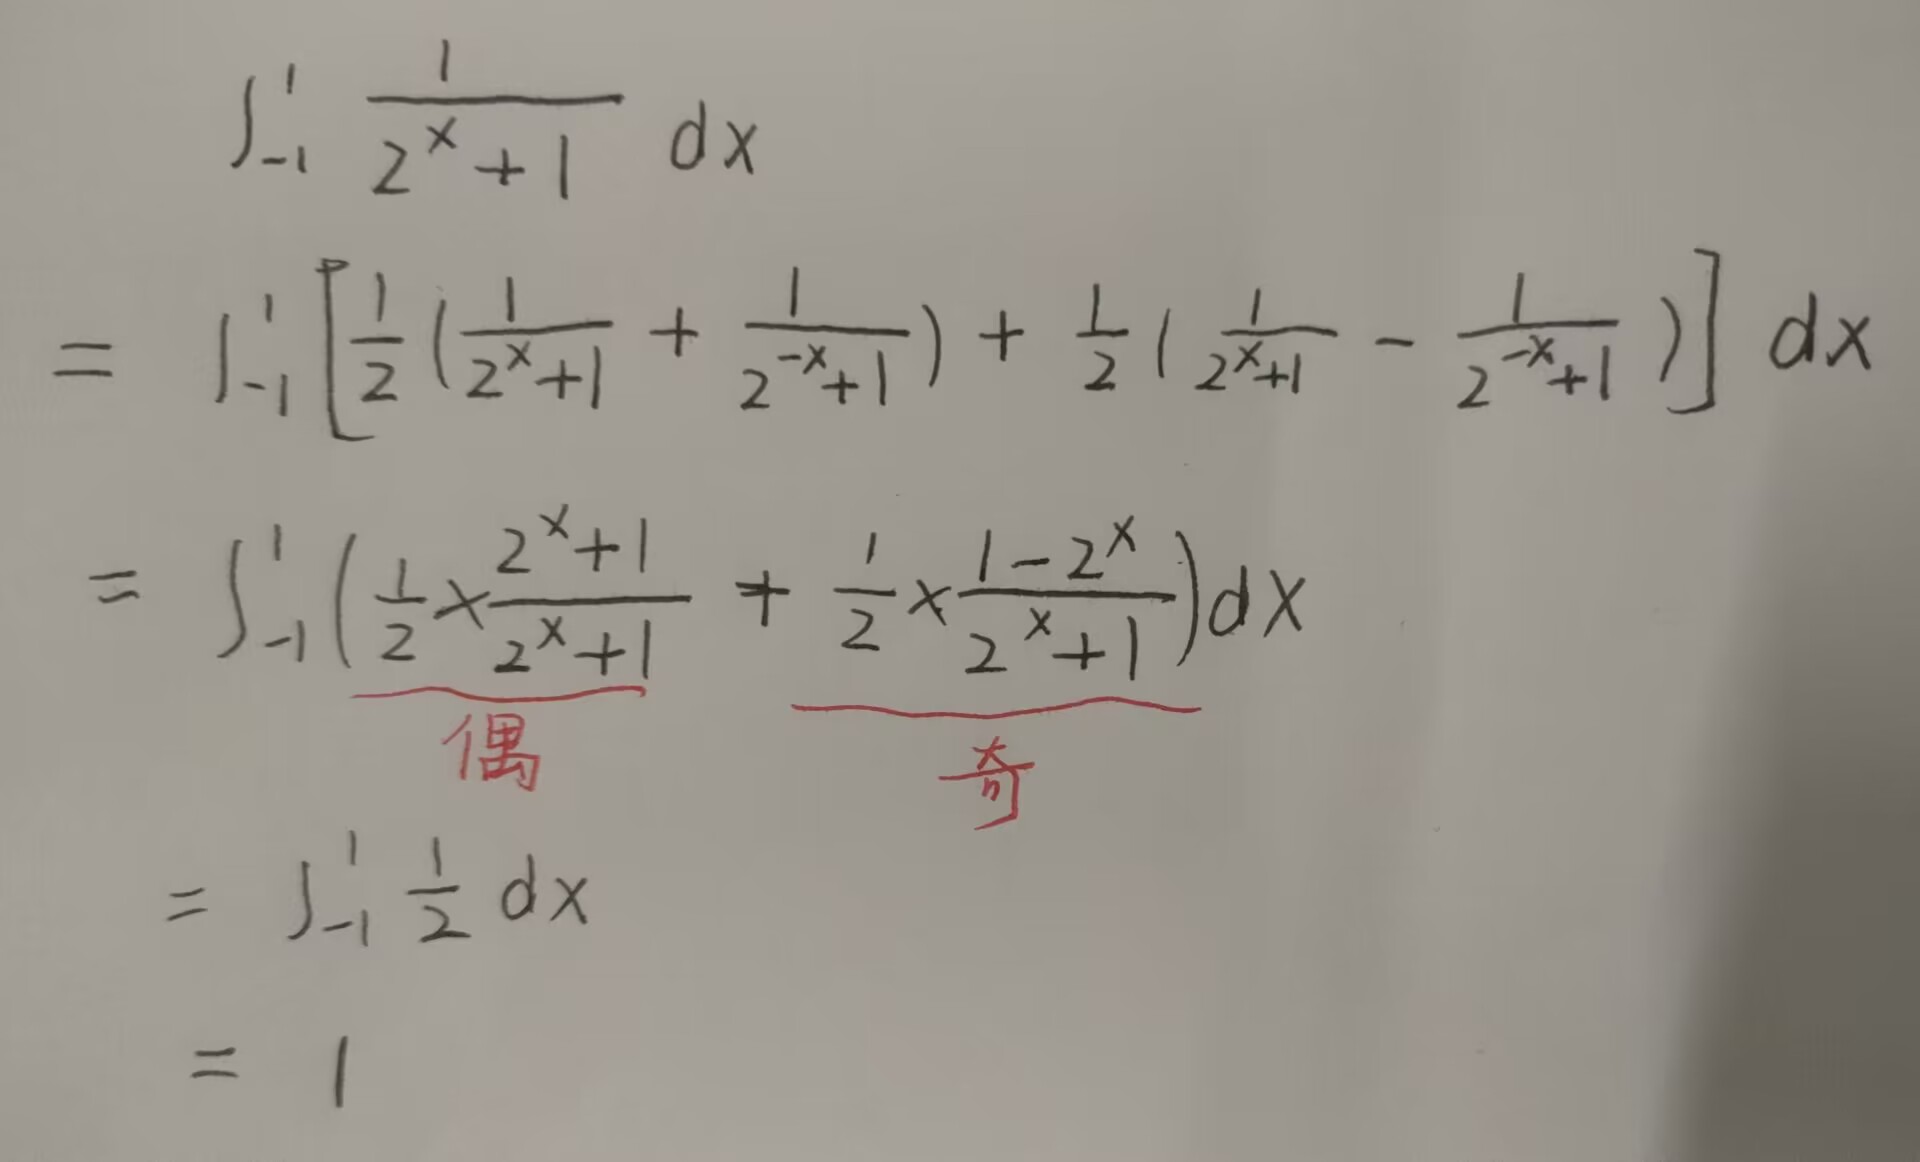 ∫₋₁¹ 1/(2ˣ+1) dx
= ∫₋₁¹ [1/2 (1/(2ˣ+1) + 1/(2⁻ˣ+1)) + 1/2 (1/(2ˣ+1) − 1/(2⁻ˣ+1))] dx
= ∫₋₁¹ (1/2 × (2ˣ+1)/(2ˣ+1) + 1/2 × (1−2ˣ)/(2ˣ+1)) dx
偶 奇
= ∫₋₁¹ 1/2 dx
= 1